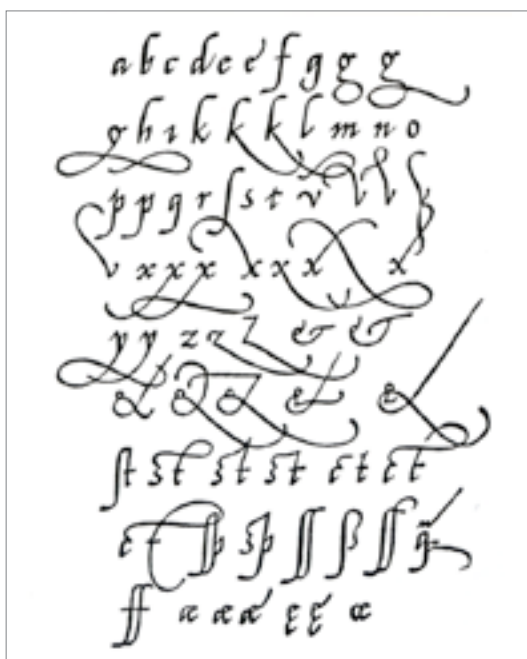 a b c d e e f g g g
g h ı k k k l m n o
p p q r ſ s t v v v
v x x x x x x x
y y z z z & &
& & & & &
ſt st st st ct ct
ct ſp sp ſſ ß ſf q̃
ff æ æ æ ę ę œ